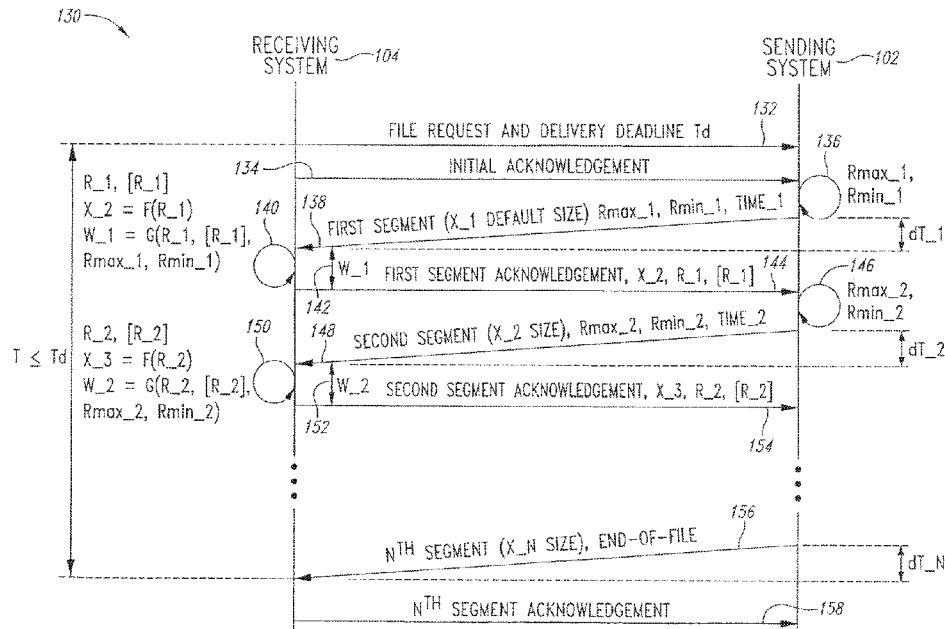 130
RECEIVING
SYSTEM
104
SENDING
SYSTEM
102
FILE REQUEST AND DELIVERY DEADLINE Td
132
136
134
INITIAL ACKNOWLEDGEMENT
Rmax_1,
Rmin_1
R_1, [R_1]
X_2 = F(R_1)
W_1 = G(R_1, [R_1],
Rmax_1, Rmin_1)
140
138
FIRST SEGMENT (X_1 DEFAULT SIZE) Rmax_1, Rmin_1, TIME_1
dT_1
W_1
142
FIRST SEGMENT ACKNOWLEDGEMENT, X_2, R_1, [R_1]
144
146
Rmax_2,
Rmin_2
T ≤ Td
R_2, [R_2]
X_3 = F(R_2)
W_2 = G(R_2, [R_2],
Rmax_2, Rmin_2)
150
148
SECOND SEGMENT (X_2 SIZE), Rmax_2, Rmin_2, TIME_2
dT_2
W_2
152
SECOND SEGMENT ACKNOWLEDGEMENT, X_3, R_2, [R_2]
154
156
NTH SEGMENT (X_N SIZE), END-OF-FILE
dT_N
NTH SEGMENT ACKNOWLEDGEMENT
158